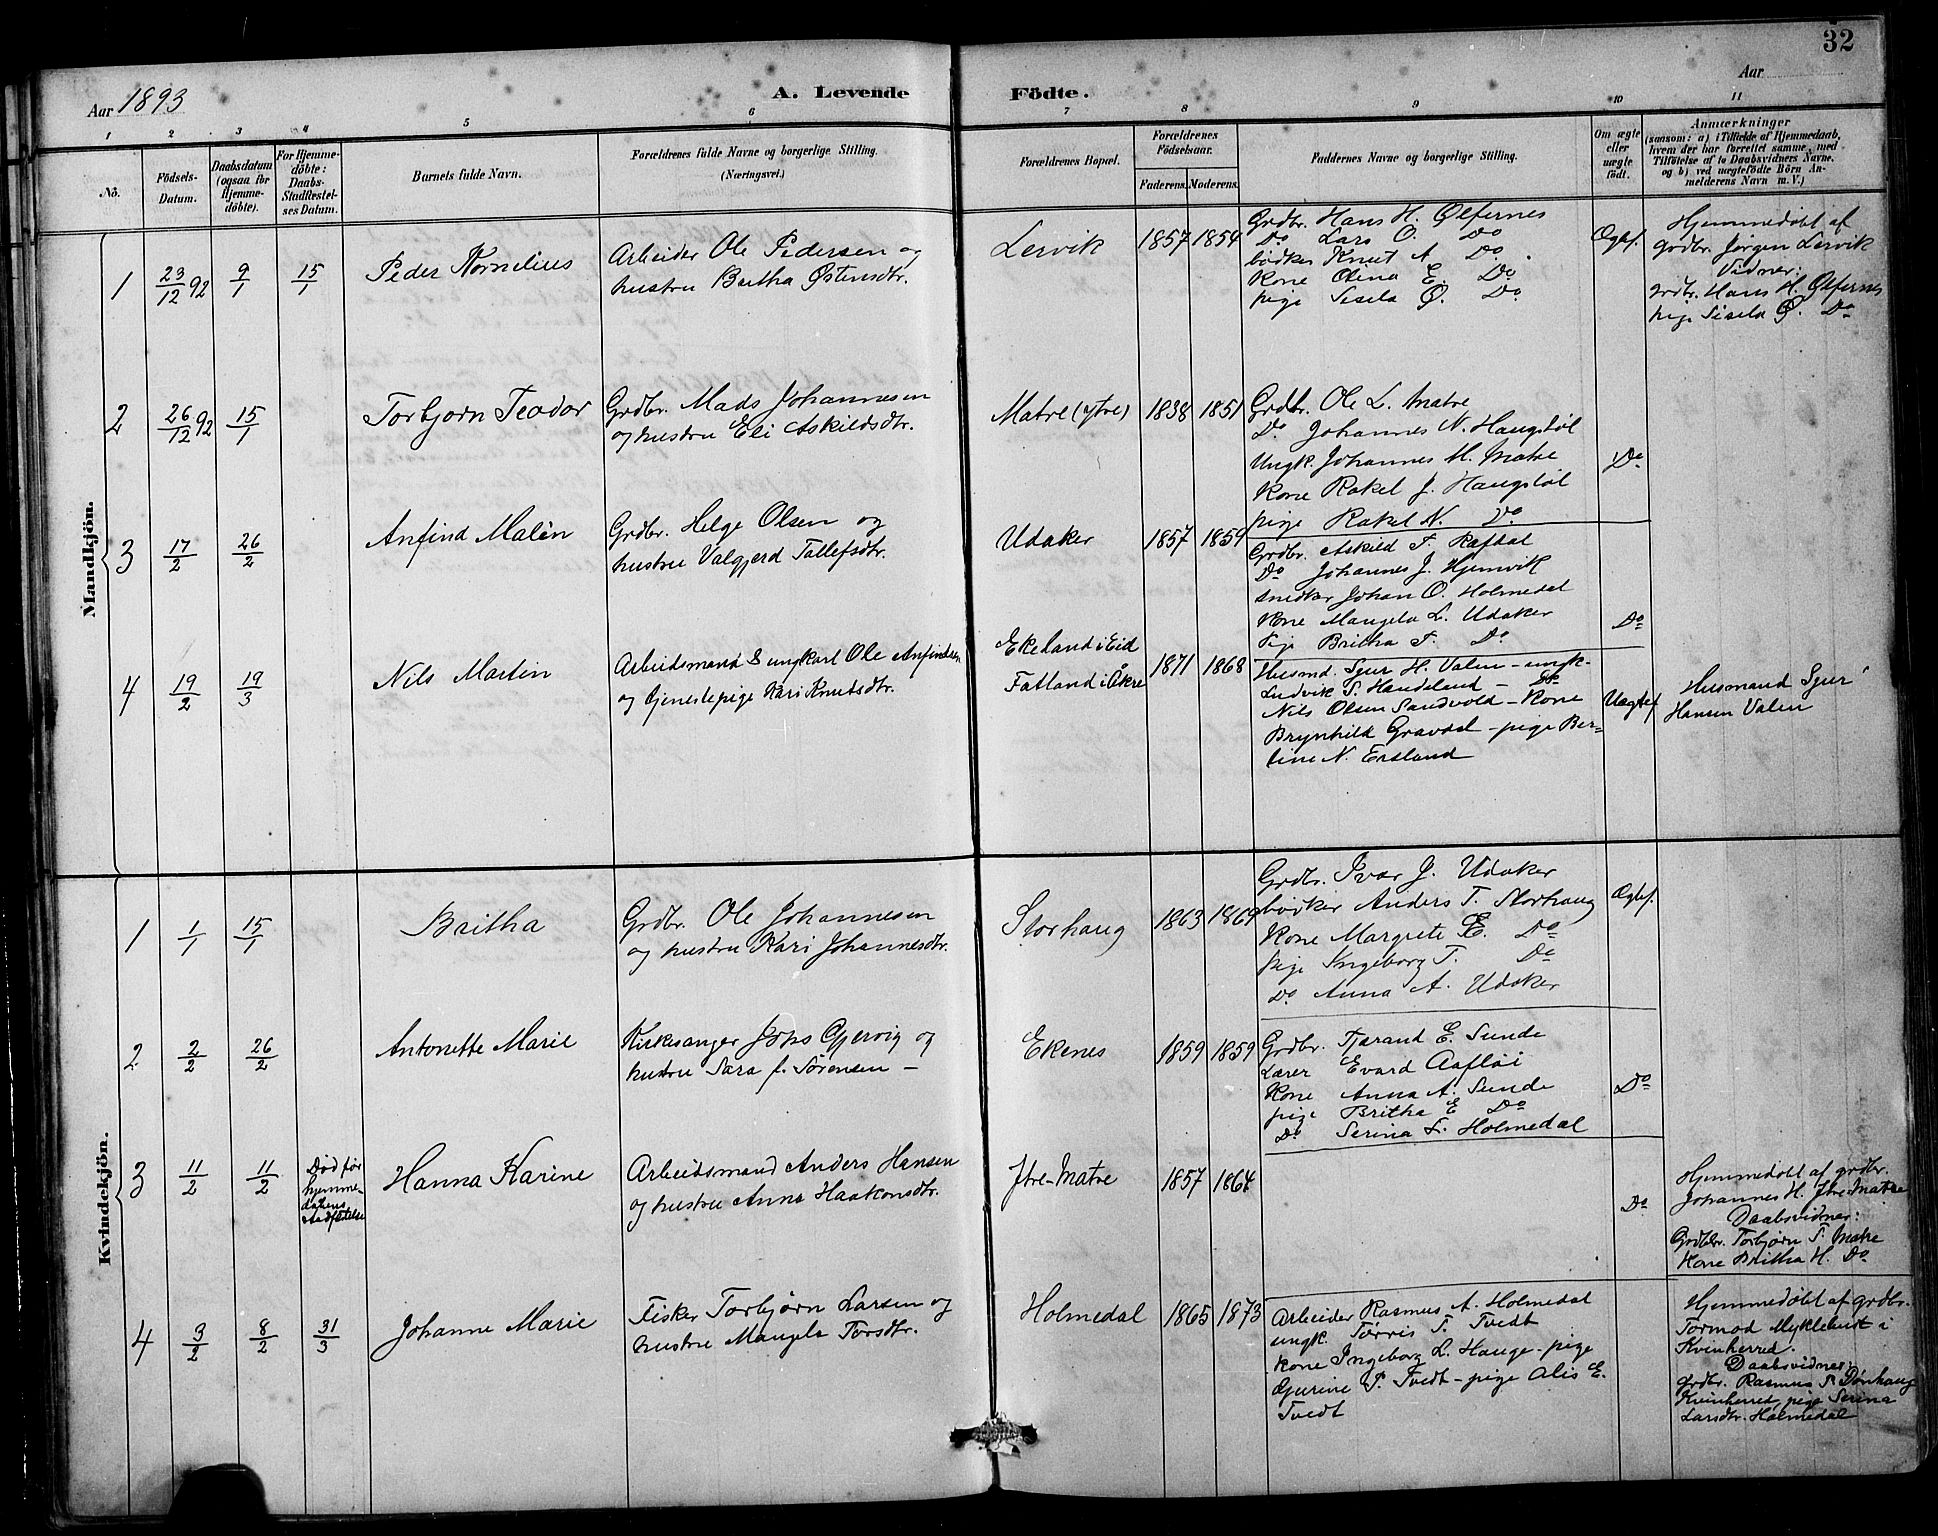 32
Aar 1893
A. Levende Födte.
Aar
1 2 3 4 5 6 7 8 9 10 11
Nō.
Födsels-
Datum.
Daabsdatum
(ogsaa for
Hjemme-
döbte).
For Hjemme-
döbte:
Daabs-
Stadfæstel-
ses Datum.
Barnets fulde Navn.
Forældrenes fulde Navne og borgerlige Stilling.
(Næringsvei.)
Forældrenes Bopæl.
Forældrenes
Födselsaar.
Faderens. Moderens.
Faddernes Navne og borgerlige Stilling.
Om ægte
eller
uægte
födt.
Anmærkninger
(saasom: a) i Tilfælde af Hjemmedaab,
hvem der har forrettet samme, med
Tilföielse af to Daabsvidners Navne.
og b) ved uægtefödte Börn An-
melderens Navn m. V.)
Mandkjön.
1
23/12 92
9/1
15/1
Peder Kornelius
Arbeider Ole Pedersen og
hustru Britha Østensdtr.
Lervik
1857 1854
Grdbr. Hans H. Ølfernes
Do Lars O. Do
bødker Knut A Do
Kone Olina E. Do
pige Sisela Ø. Do
Ægtef.
Hjemmedøbt af
grdbr. Jørgen Lervik
Vidner:
grdbr. Hans H. Ølfernes
pige Sisela Ø. Do
2
26/12 92
15/1
Torbjørn Teodor
Grdbr. Mads Johannesen
og hustru Eli Askildsdtr.
Matre (ytre)
1838 1851
Grdbr. Ole L. Matre
Do Johannes N. Haugstøl
Ungk. Johannes M. Matre
Kone Rakel J. Haugstøl
pige Rakel N. Do
Do
3
17/2
26/2
Anfind Malèn
Grdbr. Helge Olsen og
hustru Valgjerd Tollefsdtr.
Udaker
1857 1859
Grdbr. Askild T. Rafdal
Do Johannes J. Hjemvik
snedker Johan O. Holmedal
Kone Mangela L. Udaker
Pige Britha T. Do
Do
4
19/2
19/3
Nils Martin
Arbeidsmand & ungkarl Ole Anfindsen
og tjenestepige Kari Knutsdtr.
Ekeland i Eid
Fatland i Åkre
1871 1868
Husmd. Sjur H. Valen - ungk.
Ludvik S. Handeland - do
Nils Olsen Sandvold - Kone
Brynhild Gravdal - pige Ber-
tine N. Ersland
Uægtef
Husmand Sjur
Hansen Valen
Kvindekjön.
1
1/1
15/1
Britha
Grdbr. Ole Johannesen
og hustru Kari Johannesdtr.
Storhaug
1863 1869
Grdbr. Ivar J. Udaker
bødker Anders T. Storhaug
Kone Margrete E. Do
pige Ingeborg T. Do
Do Anna A. Udaker
Ægtef.
2
2/2
26/2
Antonette Marie
Kirksanger Johs Gjervig og
hustru Sara f. Sørensen -
Ekenes
1859 1859
Grdbr. Tjærand E. Sunde
Lærer Evard Aafløi
Kone Anna A. Sunde
pige Britha E Do
Do Serina L. Holmedal
Do
3
11/2
11/2
Død før
hjemme-
dåbens
stadfæstelse
Hanna Karine
Arbeidsmand Anders Hansen
og hustru Anna Haakonsdtr.
Ytre-Matre
1857 1864
Do
Hjemmedøbt af grdbr.
Johannes H. Ytre-Matre
Daabsvidner:
Grdbr. Torbjørn T. Matre
Kone Britha H. Do
4
3/2
8/2
31/3
Johanne Marie
Fisker Torbjørn Larsen og
hustru Mangela Torsdtr.
Holmedal
1865 1873
Arbeider Rasmus A. Holmedal
ungk. Tørris T. Tvedt
Kone Ingeborg L. Hauge - pige
Gjurine T. Tvedt - pige Alis E.
Tvedt
Hjemmedøbt af grdbr.
Tormod Myklebust i
Kvinherred.
Daabsvidner:
Grdbr. Rasmus T. Dønhaug
Kvinherred, pige Serina
Larsdtr. Holmedal